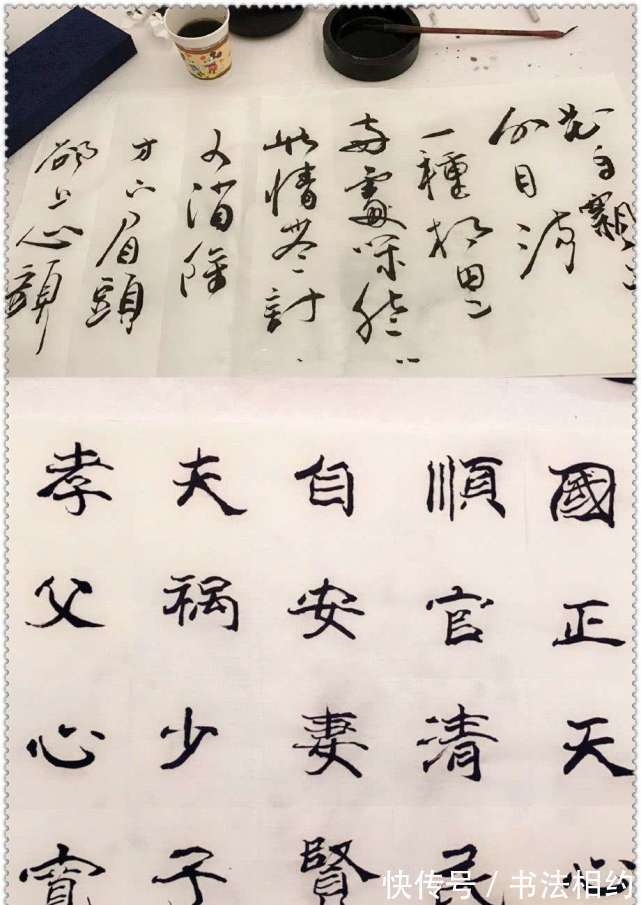 花自飄
水自流
一種相思
两處閑愁
此情無計
可消除
才下眉頭
卻上心頭
國正天心
順官清民
自安妻賢
夫祸少子
孝父心寬
快传号 / 书法相约